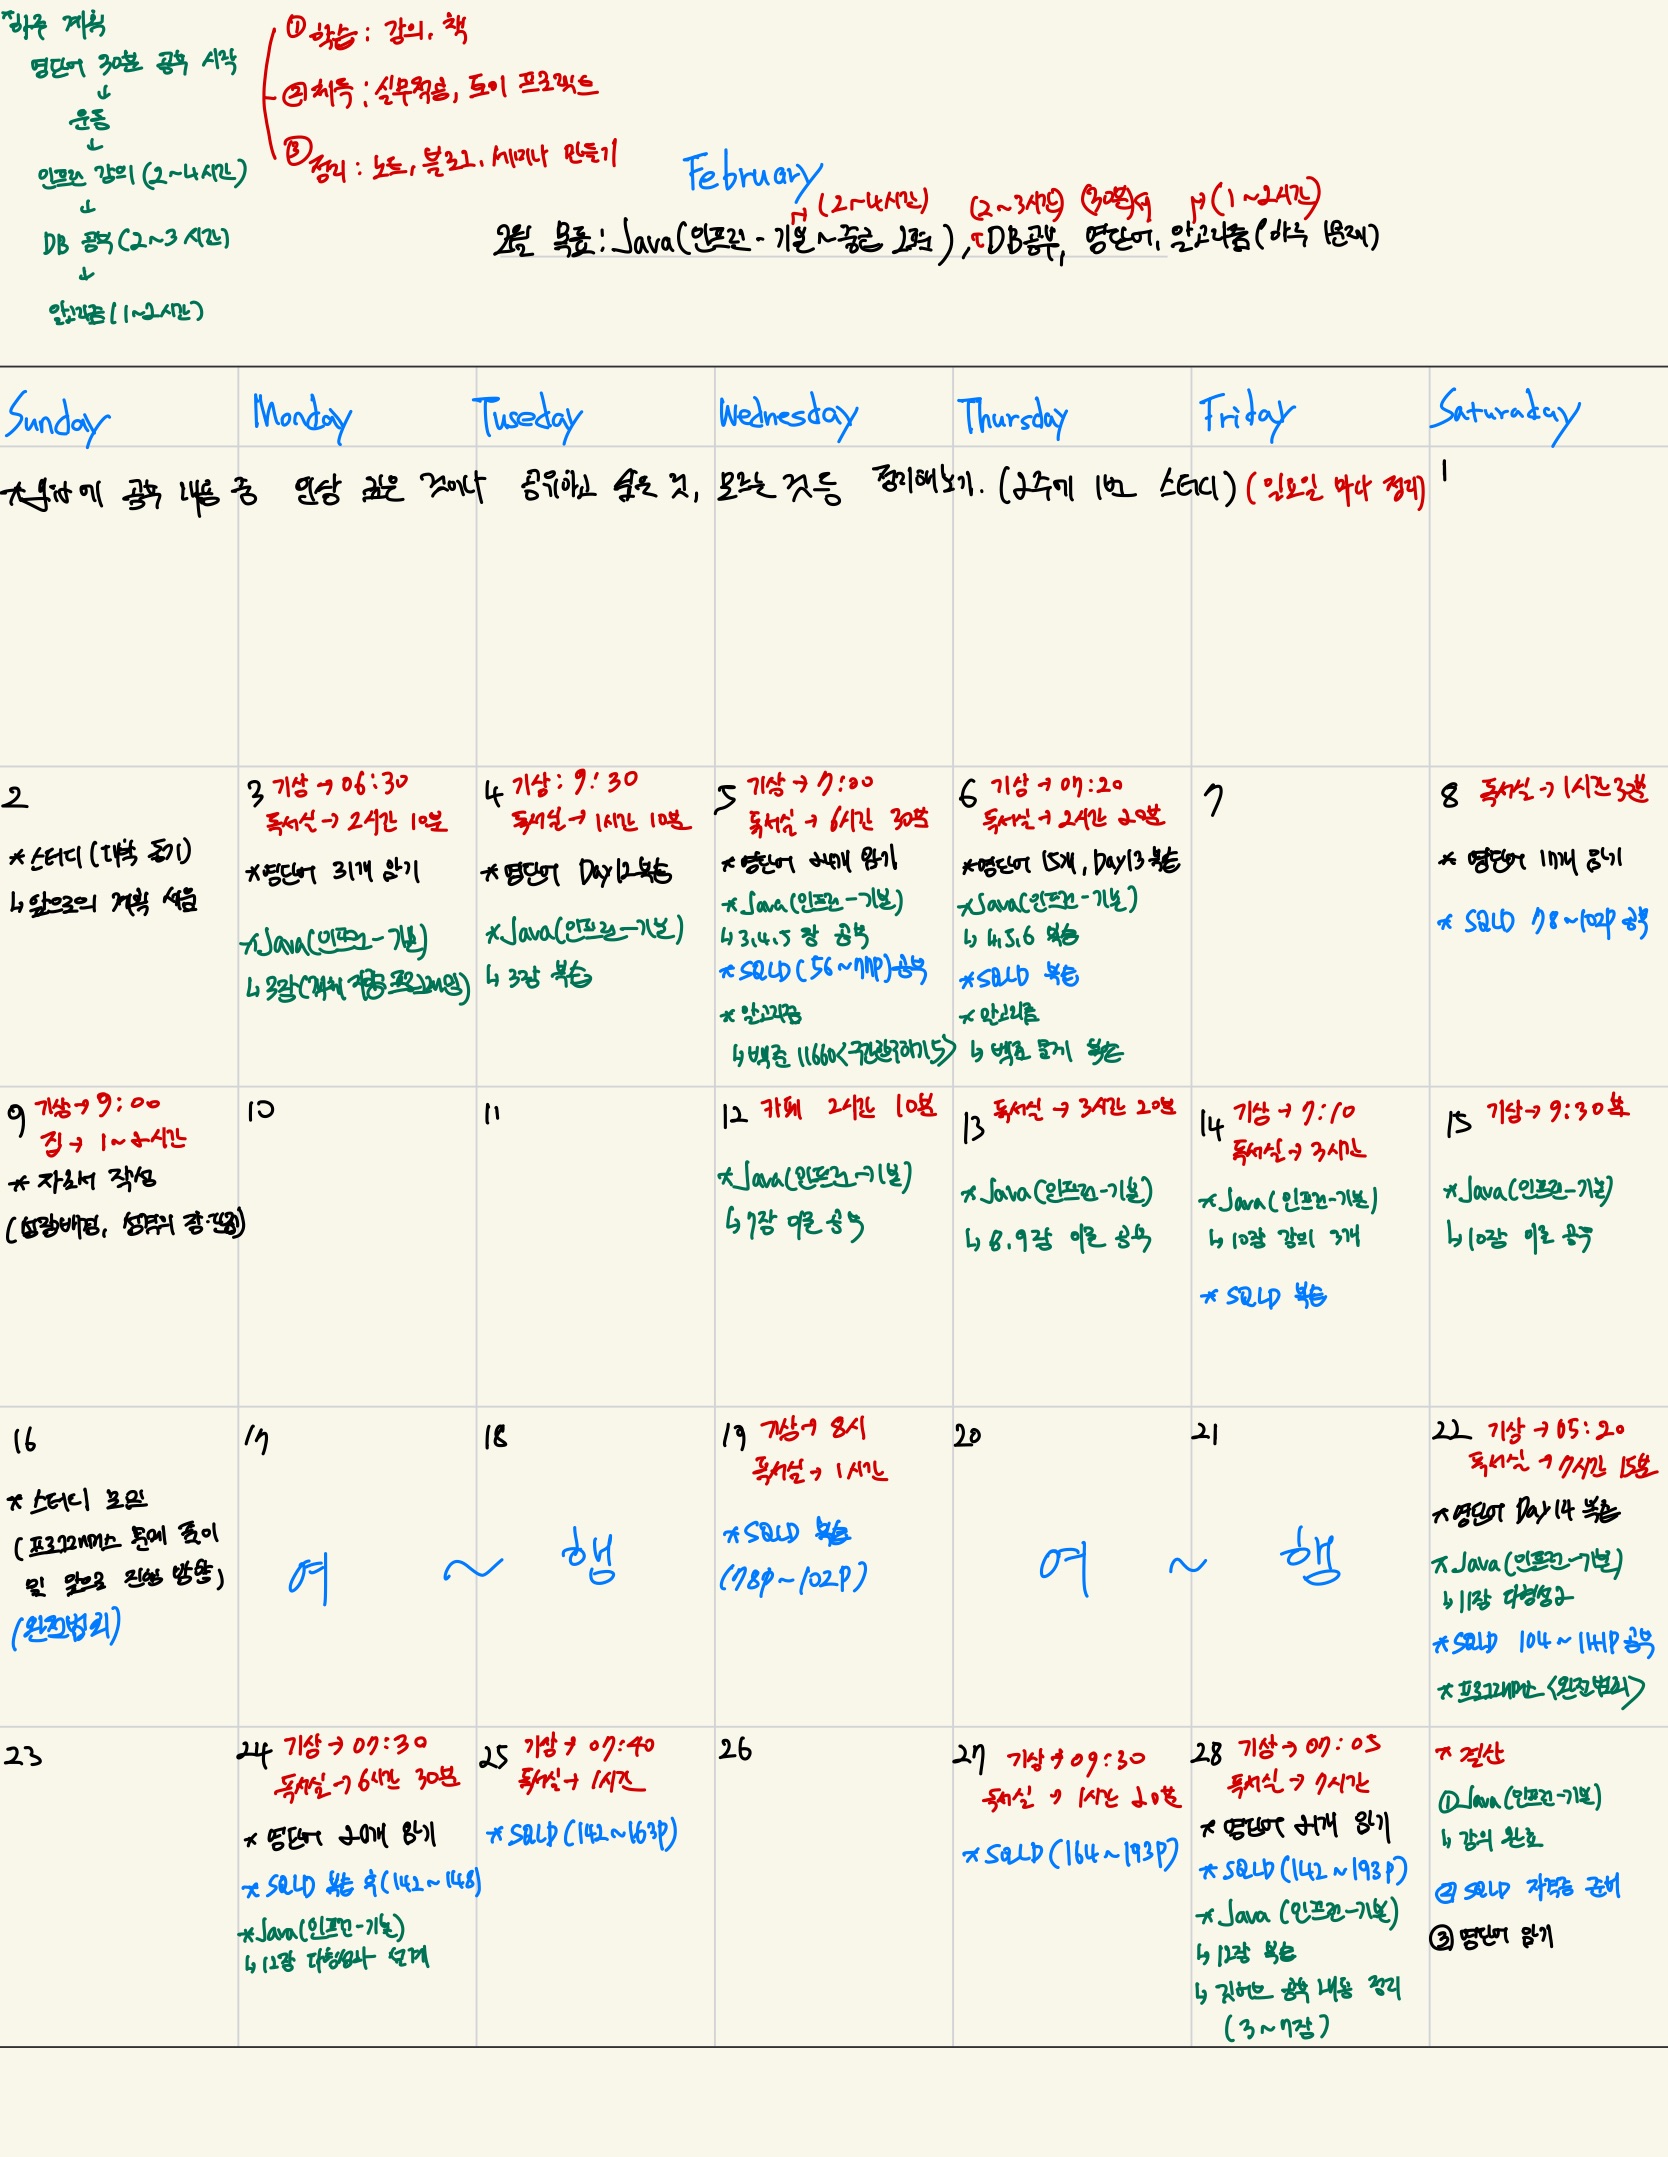 *하루 계획
영단어 30분 공부 시작
↓
운동
↓
인프런 강의 (2~4시간)
↓
DB 공부 (2~3시간)
↓
알고리즘 (1~2시간)
① 학습 : 강의, 책
② 체득 : 실무적용, 토이 프로젝트
③ 정리 : 노트, 블로그, 세미나 만들기
February
(2~4시간) (2~3시간) (30분) (1~2시간)
2월 목표 : Java(인프런 - 기본~중급 2편), DB공부, 영단어, 알고리즘(하루 1문제)
Sunday Monday Tuseday Wednesday Thursday Friday Saturaday
에 공부 내용 중 인상 깊은 것이나 공유하고 싶은 것, 모르는 것 등 정리해보기. (2주에 1번 스터디) (일요일 마다 정리)
1
2
* 스터디 (대학 동기)
↳ 앞으로의 계획 세움
3 기상 → 06:30
독서실 → 2시간 10분
*영단어 31개 암기
*Java(인프런-기본)
↳ 3장(객체 지향 프로그래밍)
4 기상 : 9:30
독서실 → 1시간 10분
* 영단어 Day12 복습
*Java(인프런-기본)
↳ 3장 복습
5 기상 → 7:00
독서실 → 6시간 30분
*영단어 암기
*Java(인프런-기본)
↳ 3.4.5 장 공부
*SQLD(56~77P)공부
* 알고리즘
↳ 백준 11660<구간합구하기5>
6 기상 → 07:20
독서실 → 2시간 20분
*영단어 15개, Day13 복습
*Java(인프런-기본)
↳ 4.5.6 복습
*SQLD 복습
* 알고리즘
↳ 백준 문제 복습
7
8 독서실 → 1시간 3분
* 영단어 17개 암기
* SQLD 78~102P 공부
9 기상 → 9:00
집 → 1~2시간
* 자소서 작성
(성장배경, 성격의 장·단점)
10
11
12 카페 2시간 10분
*Java(인프런-기본)
↳ 7장 이론 공부
13 독서실 → 3시간 20분
*Java(인프런-기본)
↳ 8.9장 이론 공부
14 기상 → 7:10
독서실 → 3시간
*Java(인프런-기본)
↳ 10장 강의 3개
* SQLD 복습
15 기상 → 9:30분
*Java(인프런-기본)
↳ 10장 이론 공부
16
* 스터디 모임
(프로그래머스 문제 풀이
및 앞으로 진행 방향)
(완전범죄)
17
18
여 ~ 행
19 기상 → 8시
독서실 → 1시간
*SQLD 복습
(78P~102P)
20
21
여 ~ 행
22 기상 → 05:20
독서실 → 7시간 15분
*영단어 Day14 복습
*Java(인프런-기본)
↳ 11장 다형성2
*SQLD 104~141P 공부
*프로그래머스<완전범죄>
23
24 기상 → 07:30
독서실 → 6시간 30분
* 영단어 20개 암기
* SQLD 복습 후(142~148)
*Java(인프런-기본)
↳ 12장 다형성과 설계
25 기상 → 07:40
독서실 → 1시간
*SQLD(142~163P)
26
27 기상 → 09:30
독서실 → 1시간 20분
*SQLD(164~193P)
28 기상 → 07:05
독서실 → 7시간
* 영단어 21개 암기
*SQLD(142~193P)
*Java (인프런-기본)
↳ 12장 복습
↳ 깃허브 공부 내용 정리
(3~7장)
* 결산
① Java(인프런-기본)
↳ 강의 완료
② SQLD 자격증 준비
③ 영단어 암기